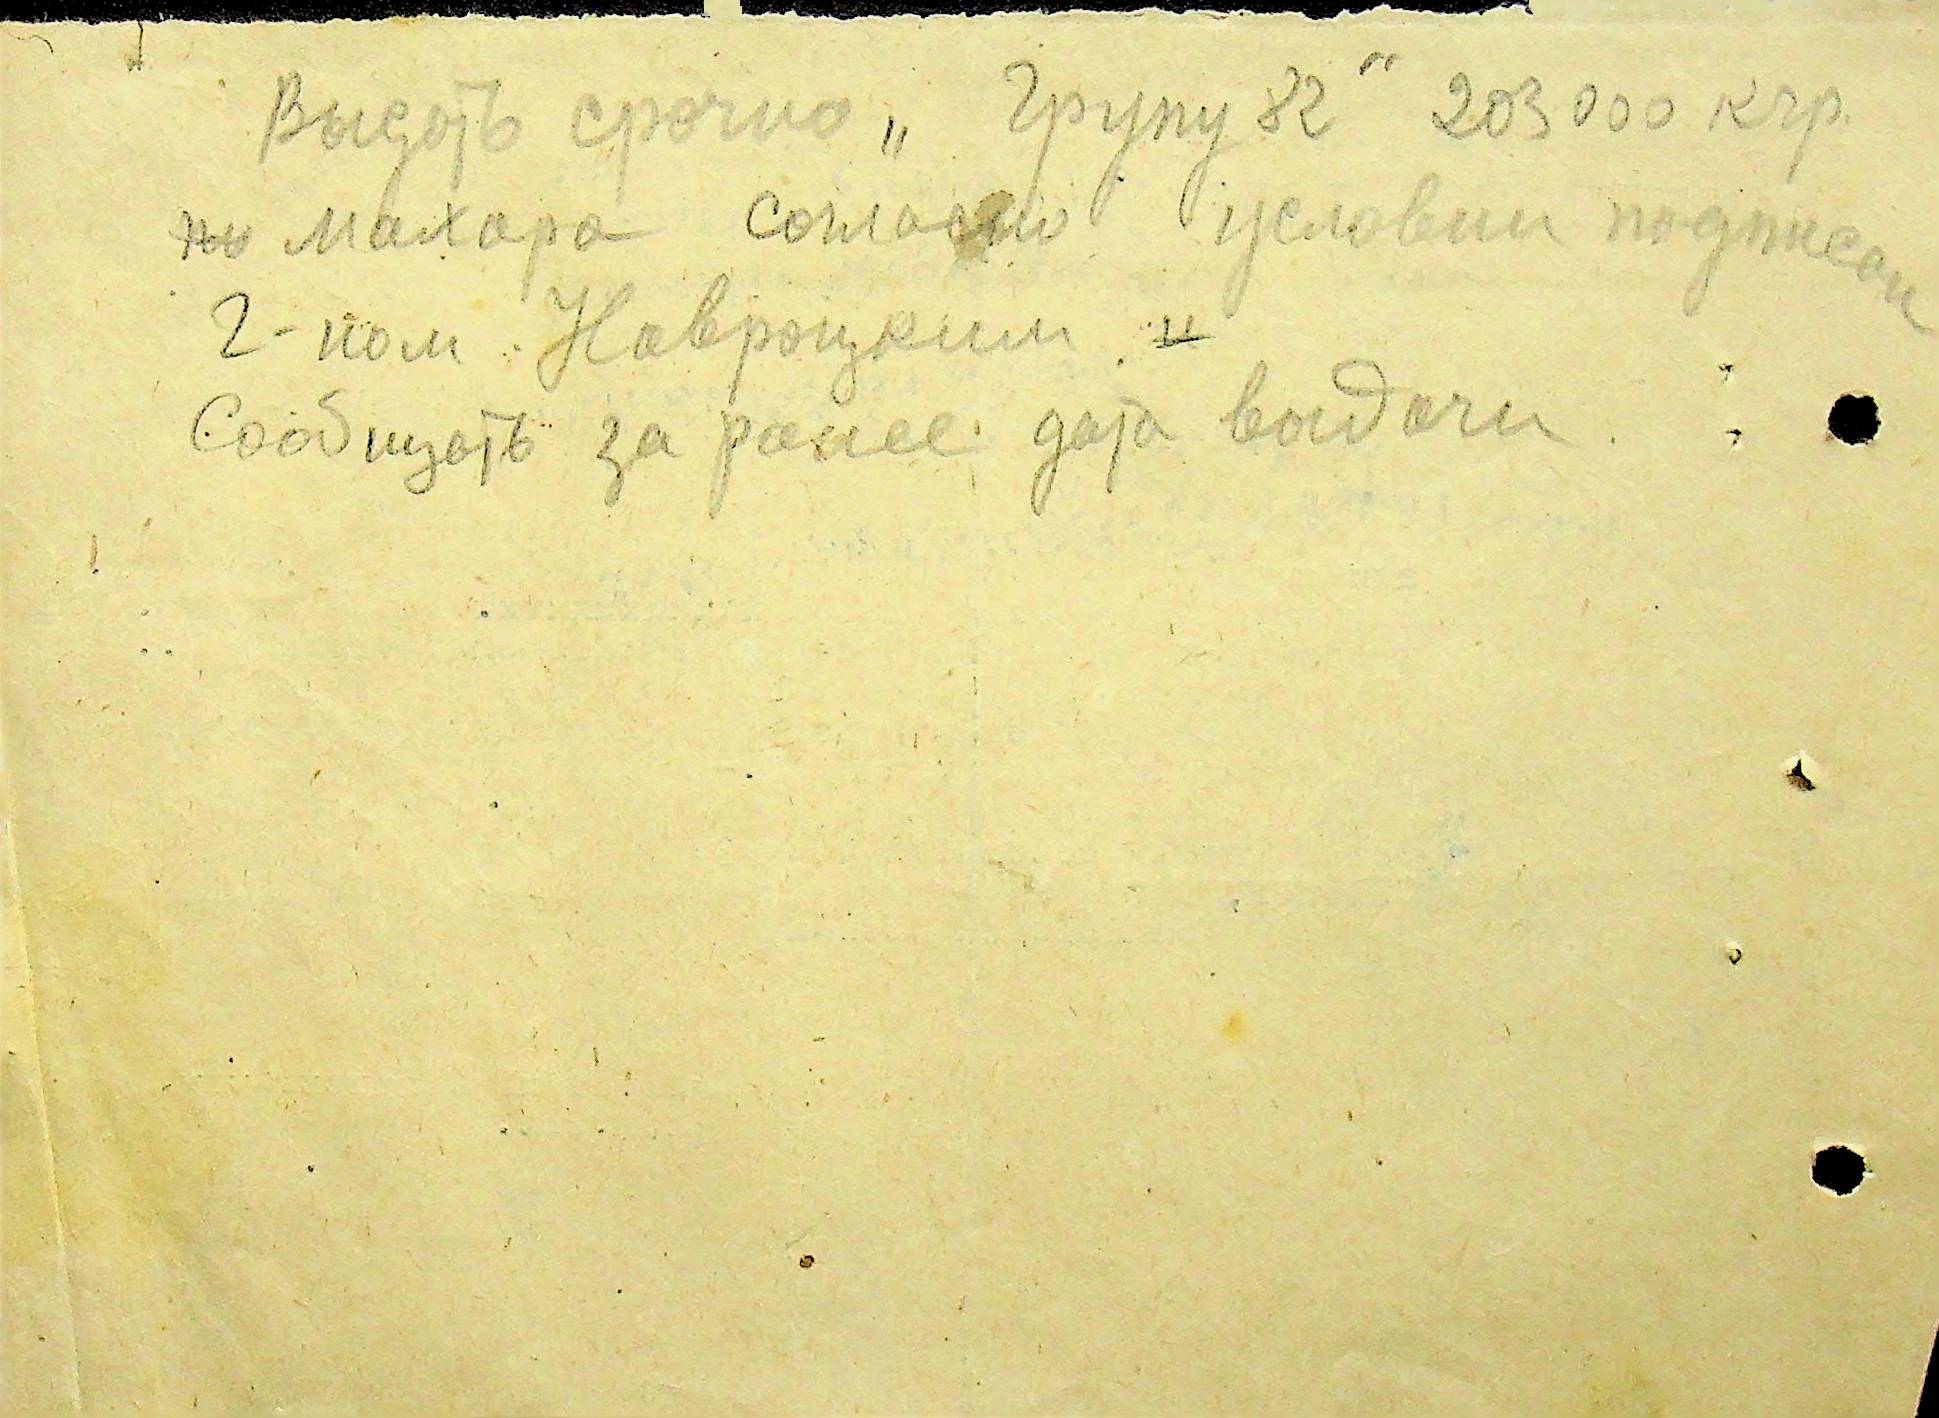 Выдать срочно „ Групу 82 " 203 000 кгр.
махора согласно условии подписан
г-ном Навроцким.
Сообщать за ранее дата выдачи.